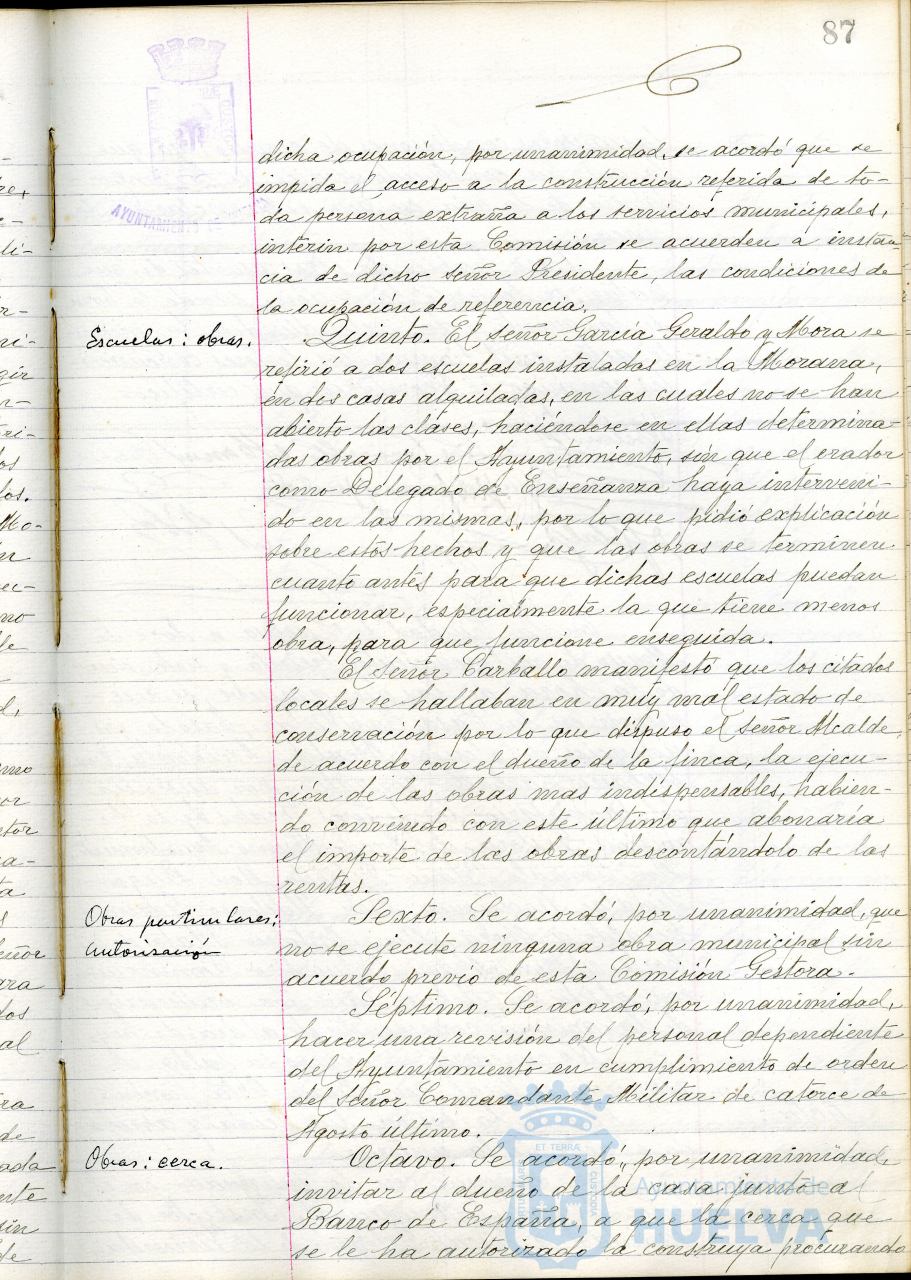 87
AYUNTAMIENTO DE
dicha ocupación, por unanimidad, se acordó que se
impida el acceso a la construcción referida de to-
da persona extraña a los servicios municipales,
interin por esta Comisión se acuerden a instan
cia de dicho señor Presidente, las condiciones de
la ocupación de referencia.
Escuelas: obras.
Quinto. El señor García Geraldo y Mora se
refirió a dos escuelas instaladas en la Morana,
en dos casas alquiladas, en las cuales no se han
abierto las clases, haciéndose en ellas determina-
das obras por el Ayuntamiento, sin que el orador
como Delegado de Enseñanza haya interveni-
do en las mismas, por lo que pidió explicación
sobre estos hechos y que las obras se terminen
cuanto antes para que dichas escuelas puedan
funcionar, especialmente la que tiene menos
obra, para que funcione enseguida.
El señor Carballo manifestó que los citados
locales se hallaban en muy mal estado de
conservación por lo que dispuso el señor Alcalde,
de acuerdo con el dueño de la finca, la ejecu-
ción de las obras mas indispensables, habien-
do convenido con este último que abonaría
el importe de las obras descontándolo de las
rentas.
Obras particulares:
autorización
Sexto. Se acordó, por unanimidad, que
no se ejecute ninguna obra municipal sin
acuerdo previo de esta Comisión Gestora.
Séptimo. Se acordó, por unanimidad,
hacer una revisión del personal dependiente
del Ayuntamiento en cumplimiento de orden
del señor Comandante Militar de catorce de
Agosto último.
Obras: cerca.
Octavo. Se acordó, por unanimidad,
invitar al dueño de la casa junto al
Banco de España, a que la cerca que
se le ha autorizado la construya procurando
Ayuntamiento de
HUELVA